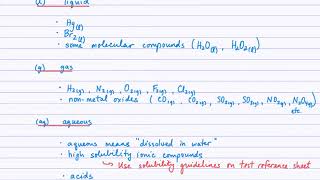 (l) liquid
• Hg(l)
• Br2(l)
• some molecular compounds (H2O(l), H2O2(l))
(g) gas
• H2(g), N2(g), O2(g), F2(g), Cl2(g)
• non-metal oxides (CO(g), CO2(g), SO2(g), SO3(g), NO2(g), N2O(g) etc.
(aq) aqueous
• aqueous means "dissolved in water"
• high solubility ionic compounds
↳ Use solubility guidelines on test reference sheet
• acids